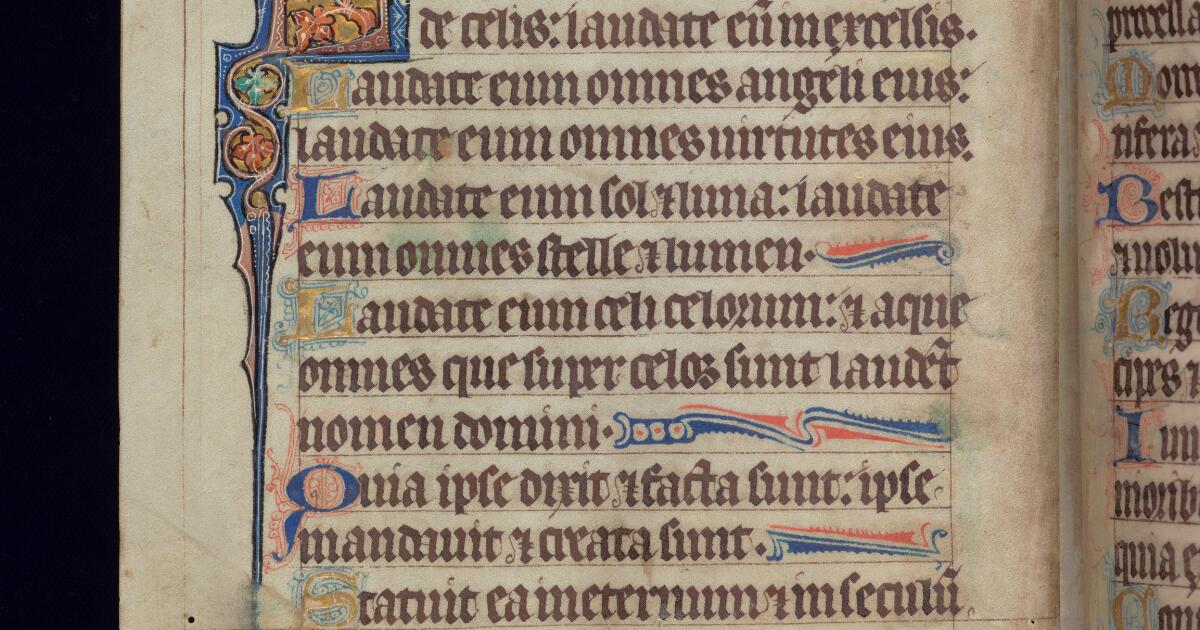 de celis: laudate eū in excelsis.
Laudate eum omnes angeli eius:
laudate eum omnes uirtutes eius.
Laudate eum sol ⁊ luna: laudate
eum omnes stelle ⁊ lumen.
Laudate eum celi celorum: ⁊ aque
omnes que super celos sunt laudēt
nomen domini.
Quia ipse dixit ⁊ facta sunt: ipse
mandauit ⁊ creata sunt.
Statuit ea in eternum ⁊ in seculū
procella
Mon
rifera
Best
⁊ uolu
Reg
cipes ⁊
Iuu
niorib
quia e